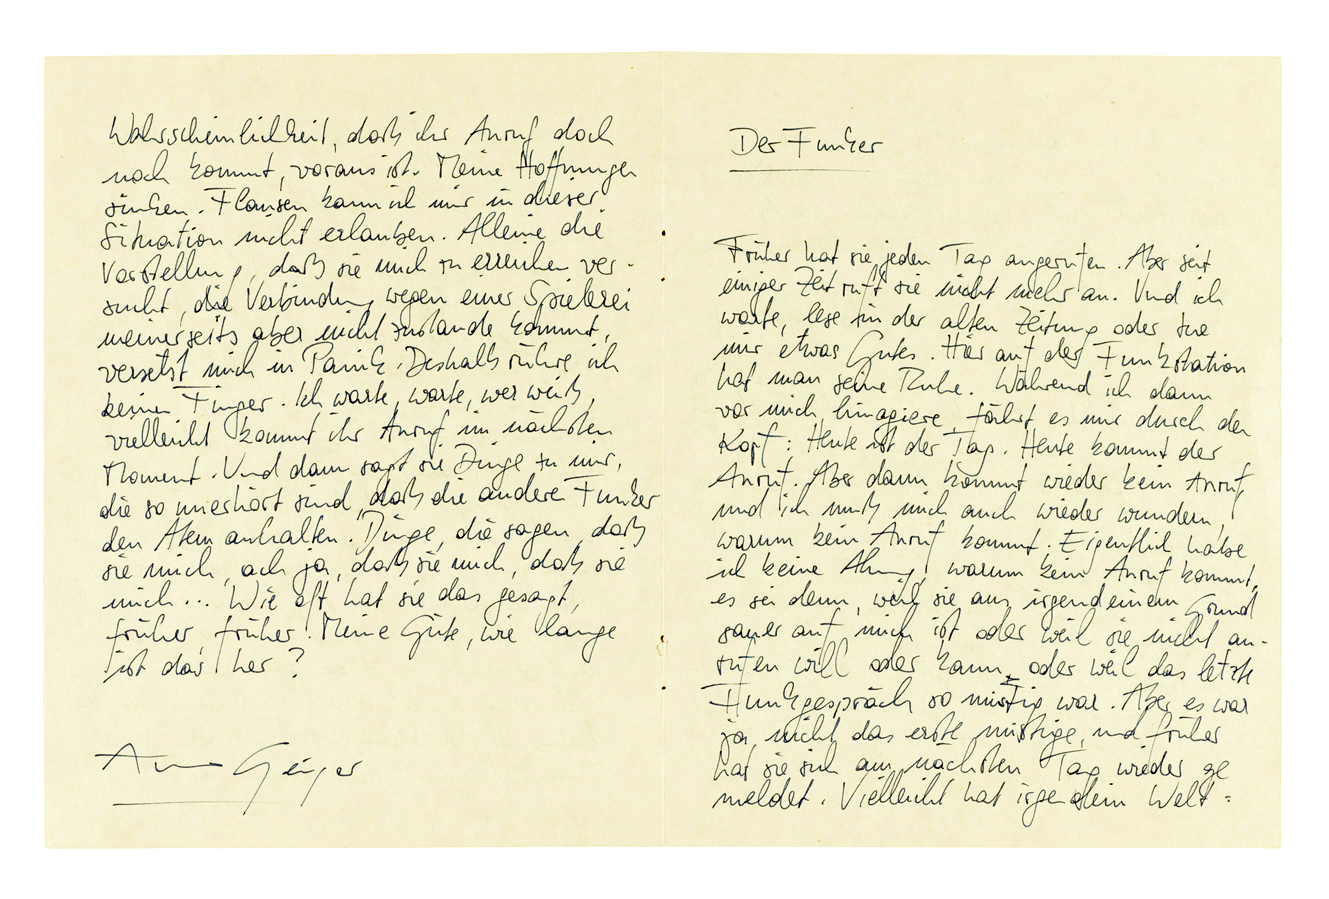 Wahrscheinlichkeit, daß ihr Anruf doch
noch kommt, voraus ist. Meine Hoffnungen
sinken. Flausen kann ich mir in dieser
Situation nicht erlauben. Alleine die
Vorstellung, daß sie mich zu erreichen ver-
sucht, die Verbindung wegen einer Spielerei
meinerseits aber nicht zustande kommt,
versetzt mich in Panik. Deshalb rühre ich
keinen Finger. Ich warte, warte, wer weiß,
vielleicht kommt ihr Anruf im nächsten
Moment. Und dann sagt sie Dinge zu mir,
die so unerhört sind, daß die anderen Funker
den Atem anhalten. Dinge, die sagen, daß
sie mich, ach ja, daß sie mich, daß sie
mich... Wie oft hat sie das gesagt,
früher, früher! Meine Güte, wie lange
ist das her?
Arno Geiger
Der Funker
Früher hat sie jeden Tag angerufen. Aber seit
einiger Zeit ruft sie nicht mehr an. Und ich
warte, lese in der alten Zeitung oder tue
mir etwas Gutes. Hier auf der Funkstation
hat man seine Ruhe. Während ich dann
vor mich hinagiere, fährt es mir durch den
Kopf: Heute ist der Tag. Heute kommt der
Anruf. Aber dann kommt wieder kein Anruf,
und ich muß mich auch wieder wundern,
warum kein Anruf kommt. Eigentlich habe
ich keine Ahnung, warum kein Anruf kommt,
es sei denn, weil sie aus irgendeinem Grund
sauer auf mich ist oder weil sie nicht an-
rufen will oder kann, oder weil das letzte
Funkgespräch so mistig war. Aber es war
ja nicht das erste mistige, und früher
hat sie sich am nächsten Tag wieder ge
meldet. Vielleicht hat irgendein Welt-